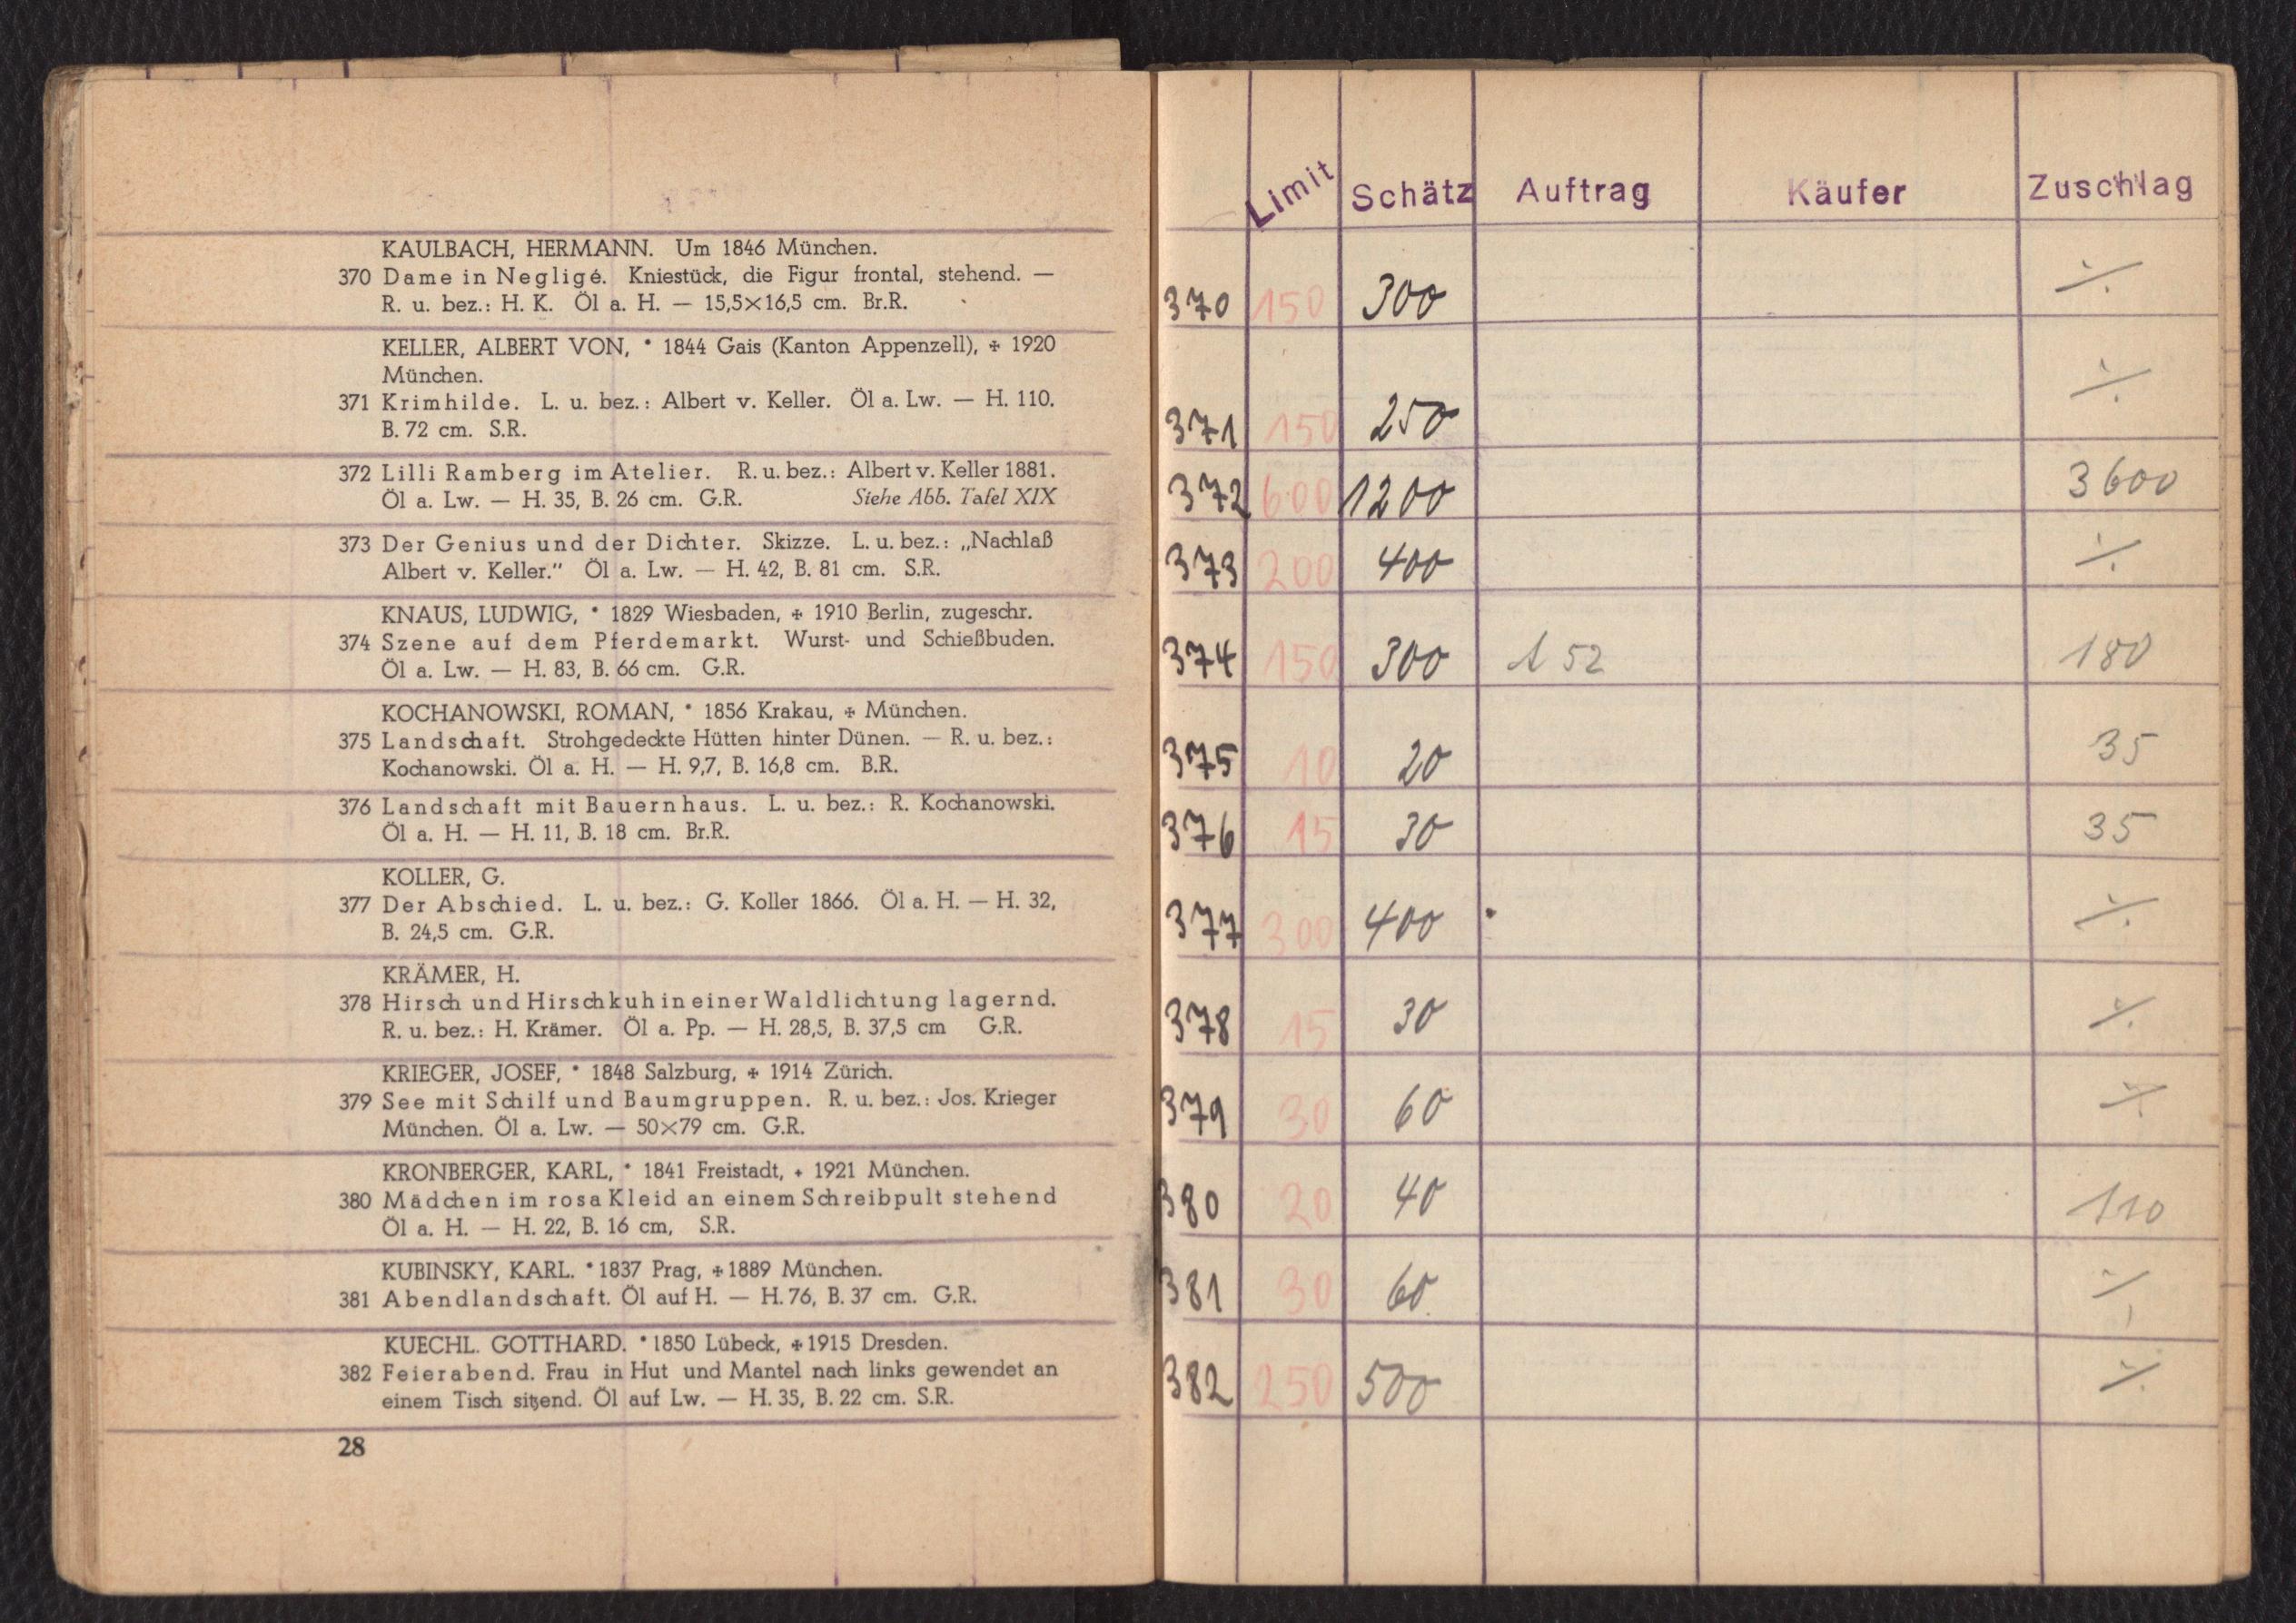 KAULBACH, HERMANN. Um 1846 München.
370 Dame in Negligé. Kniestück, die Figur frontal, stehend. —
R. u. bez.: H. K. Öl a. H. — 15,5×16,5 cm. Br.R.
KELLER, ALBERT VON, * 1844 Gais (Kanton Appenzell), ✠ 1920
München.
371 Krimhilde. L. u. bez.: Albert v. Keller. Öl a. Lw. — H. 110.
B. 72 cm. S.R.
372 Lilli Ramberg im Atelier. R. u. bez.: Albert v. Keller 1881.
Öl a. Lw. — H. 35, B. 26 cm. G.R. Siehe Abb. Tafel XIX
373 Der Genius und der Dichter. Skizze. L. u. bez.: „Nachlaß
Albert v. Keller.“ Öl a. Lw. — H. 42, B. 81 cm. S.R.
KNAUS, LUDWIG, * 1829 Wiesbaden, ✠ 1910 Berlin, zugeschr.
374 Szene auf dem Pferdemarkt. Wurst- und Schießbuden.
Öl a. Lw. — H. 83, B. 66 cm. G.R.
KOCHANOWSKI, ROMAN, * 1856 Krakau, ✠ München.
375 Landschaft. Strohgedeckte Hütten hinter Dünen. — R. u. bez.:
Kochanowski. Öl a. H. — H. 9,7, B. 16,8 cm. B.R.
376 Landschaft mit Bauernhaus. L. u. bez.: R. Kochanowski.
Öl a. H. — H. 11, B. 18 cm. Br.R.
KOLLER, G.
377 Der Abschied. L. u. bez.: G. Koller 1866. Öl a. H. — H. 32,
B. 24,5 cm. G.R.
KRÄMER, H.
378 Hirsch und Hirschkuh in einer Waldlichtung lagernd.
R. u. bez.: H. Krämer. Öl a. Pp. — H. 28,5, B. 37,5 cm G.R.
KRIEGER, JOSEF, * 1848 Salzburg, ✠ 1914 Zürich.
379 See mit Schilf und Baumgruppen. R. u. bez.: Jos. Krieger
München. Öl a. Lw. — 50×79 cm. G.R.
KRONBERGER, KARL, * 1841 Freistadt, ✠ 1921 München.
380 Mädchen im rosa Kleid an einem Schreibpult stehend
Öl a. H. — H. 22, B. 16 cm, S.R.
KUBINSKY, KARL. * 1837 Prag, ✠ 1889 München.
381 Abendlandschaft. Öl auf H. — H. 76, B. 37 cm. G.R.
KUECHL. GOTTHARD. * 1850 Lübeck, ✠ 1915 Dresden.
382 Feierabend. Frau in Hut und Mantel nach links gewendet an
einem Tisch sitzend. Öl auf Lw. — H. 35, B. 22 cm. S.R.
28
Limit Schätz Auftrag Käufer Zuschlag
370 150 300 ·/.
371 150 250 ·/.
372 600 1200 3600
373 200 400 ·/.
374 150 300 152 180
375 10 20 35
376 15 30 35
377 300 400 ·/.
378 15 30 ·/.
379 30 60 ·/.
380 20 40 110
381 30 60 ·/.
382 250 500 ·/.